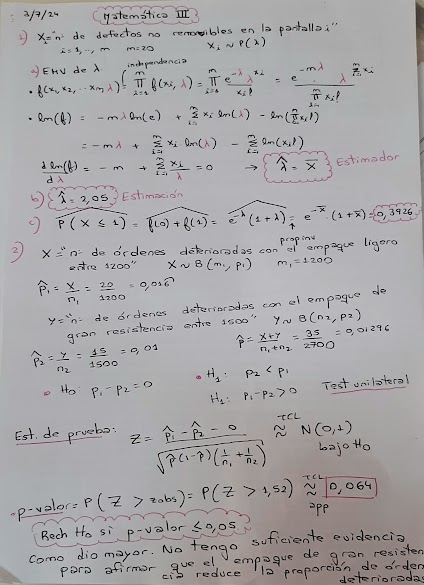 3/7/24 Matemática III
1) Xi="n° de defectos no removibles en la pantalla i"
i=1,..., m m=20 Xi ~ P(λ)
a) EMV de λ independencia
• f(x1, x2, ... xm, λ) = ∏ f(xi, λ) = ∏ e^-λ λ^xi / xi! = e^-mλ λ^Σxi / ∏ xi!
• ln(f) = -mλ ln(e) + Σ xi ln(λ) - ln(∏ xi!)
= -mλ + Σ xi ln(λ) - Σ ln(xi!)
d ln(f)/dλ = -m + Σ xi/λ = 0 → λ̂ = X̄ Estimador
b) λ̂ = 2,05 Estimación
c) P(X ≤ 1) = f(0) + f(1) = e^-λ (1+λ) = e^-x̄ (1+x̄) = 0,3926
2) X="n° de órdenes deterioradas con el empaque ligero
entre 1200" X ~ B(n1, p1) n1=1200
p̂1 = X/n1 = 20/1200 = 0,016
Y="n° de órdenes deterioradas con el empaque de
gran resistencia entre 1500" Y ~ B(n2, p2)
p̂2 = Y/n2 = 15/1500 = 0,01 p̂ = X+Y/n1+n2 = 35/2700 = 0,01296
• H0: p1-p2=0 • H1: p2 < p1
H1: p1-p2>0 Test unilateral
Est. de prueba: Z = p̂1 - p̂2 - 0 / √p̂(1-p̂)(1/n1 + 1/n2) TCL ≈ N(0,1)
bajo H0
• p-valor = P(Z > zobs) = P(Z > 1,52) TCL ≈ 0,064
app
Rech H0 si p-valor ≤ 0,05
Como dio mayor. No tengo suficiente evidencia
para afirmar que el empaque de gran resisten
cia reduce la proporción de órden
deterioradas